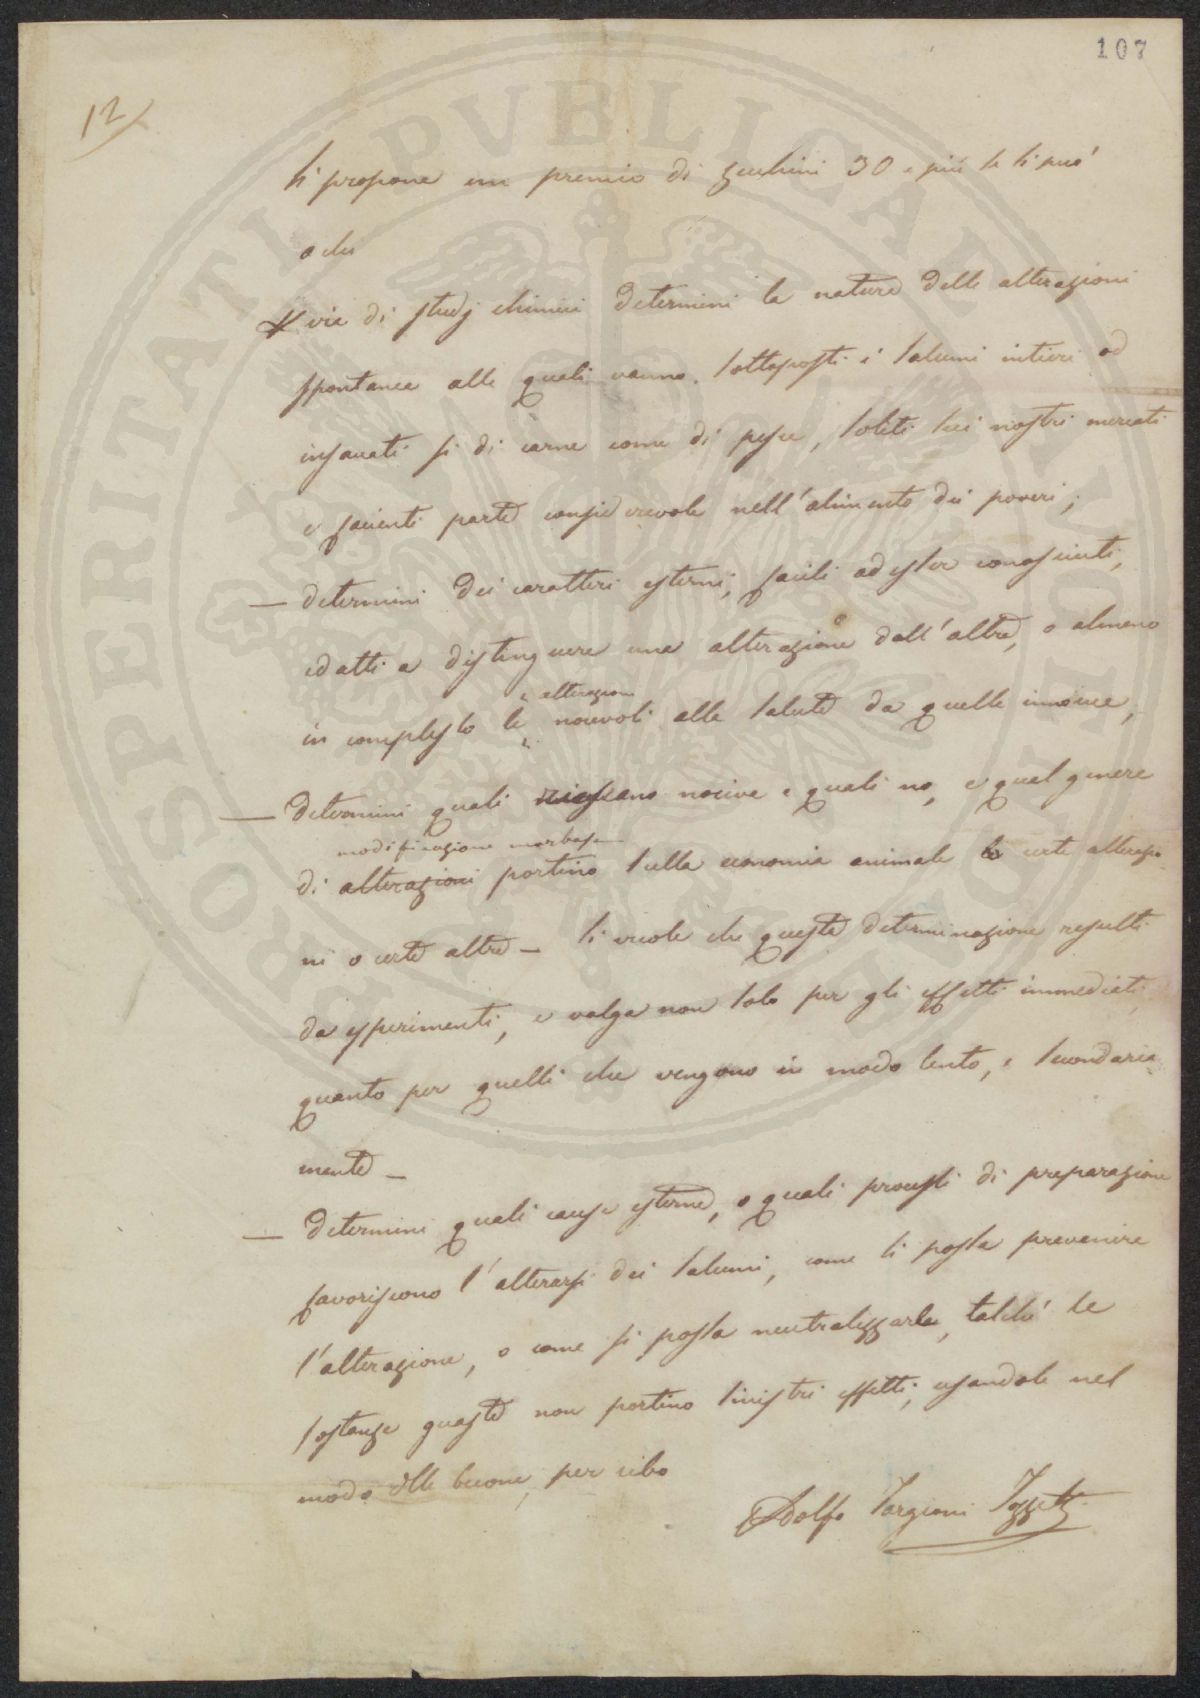 107
12
Si propone un premio di zecchini 30 e più se si può
a chi
per via di studj chimici determini la natura delle alterazioni
spontanee alle quali vanno sottoposti i salumi intieri od
insaccati sì di carne come di pesce, soliti sui nostri mercati
e facienti parte considerevole nell'alimento dei poveri;
— determini dei caratteri esterni, facili ad esser conosciuti,
ed atti a distinguere una alterazione dall'altra, o almeno
alterazioni
in complesso le nocevoli alla salute da quelle innocue,
— determini quali riescano nocive e quali no, e qual genere
modificazione morbosa
di alterazioni portino sulla economia animale le certe alterazio
ni o certe altre — Si vuole che questa determinazione resulti
da esperimenti, e valga non solo per gli effetti immediati,
quanto per quelli che vengono in modo lento, e secondaria
mente —
— Determini quali cause esterne, o quali processi di preparazione
favoriscono l'alterarsi dei salumi, come si possa prevenire
l'alterazione, o come si possa neutralizzarla, talchè le
sostanze guaste non portino sinistri effetti, usandole nel
modo delle buone, per cibo
Adolfo Targioni Tozzetti
PROSPERITATI PVBLICAE AVGENDAE